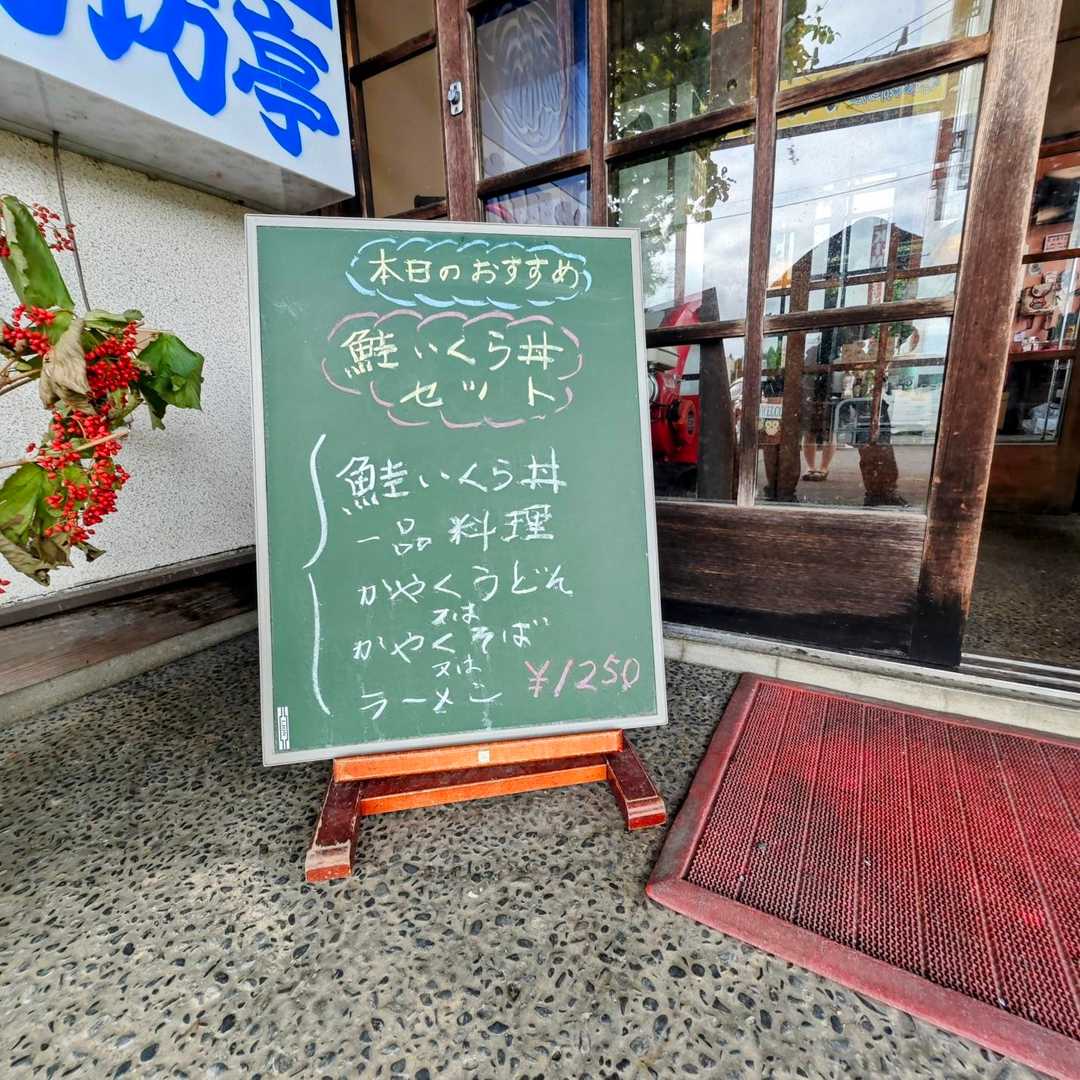 坊亭
本日のおすすめ
鮭いくら丼
セット
鮭いくら丼
一品料理
かやくうどん
又は
かやくそば
又は
ラーメン
¥1250